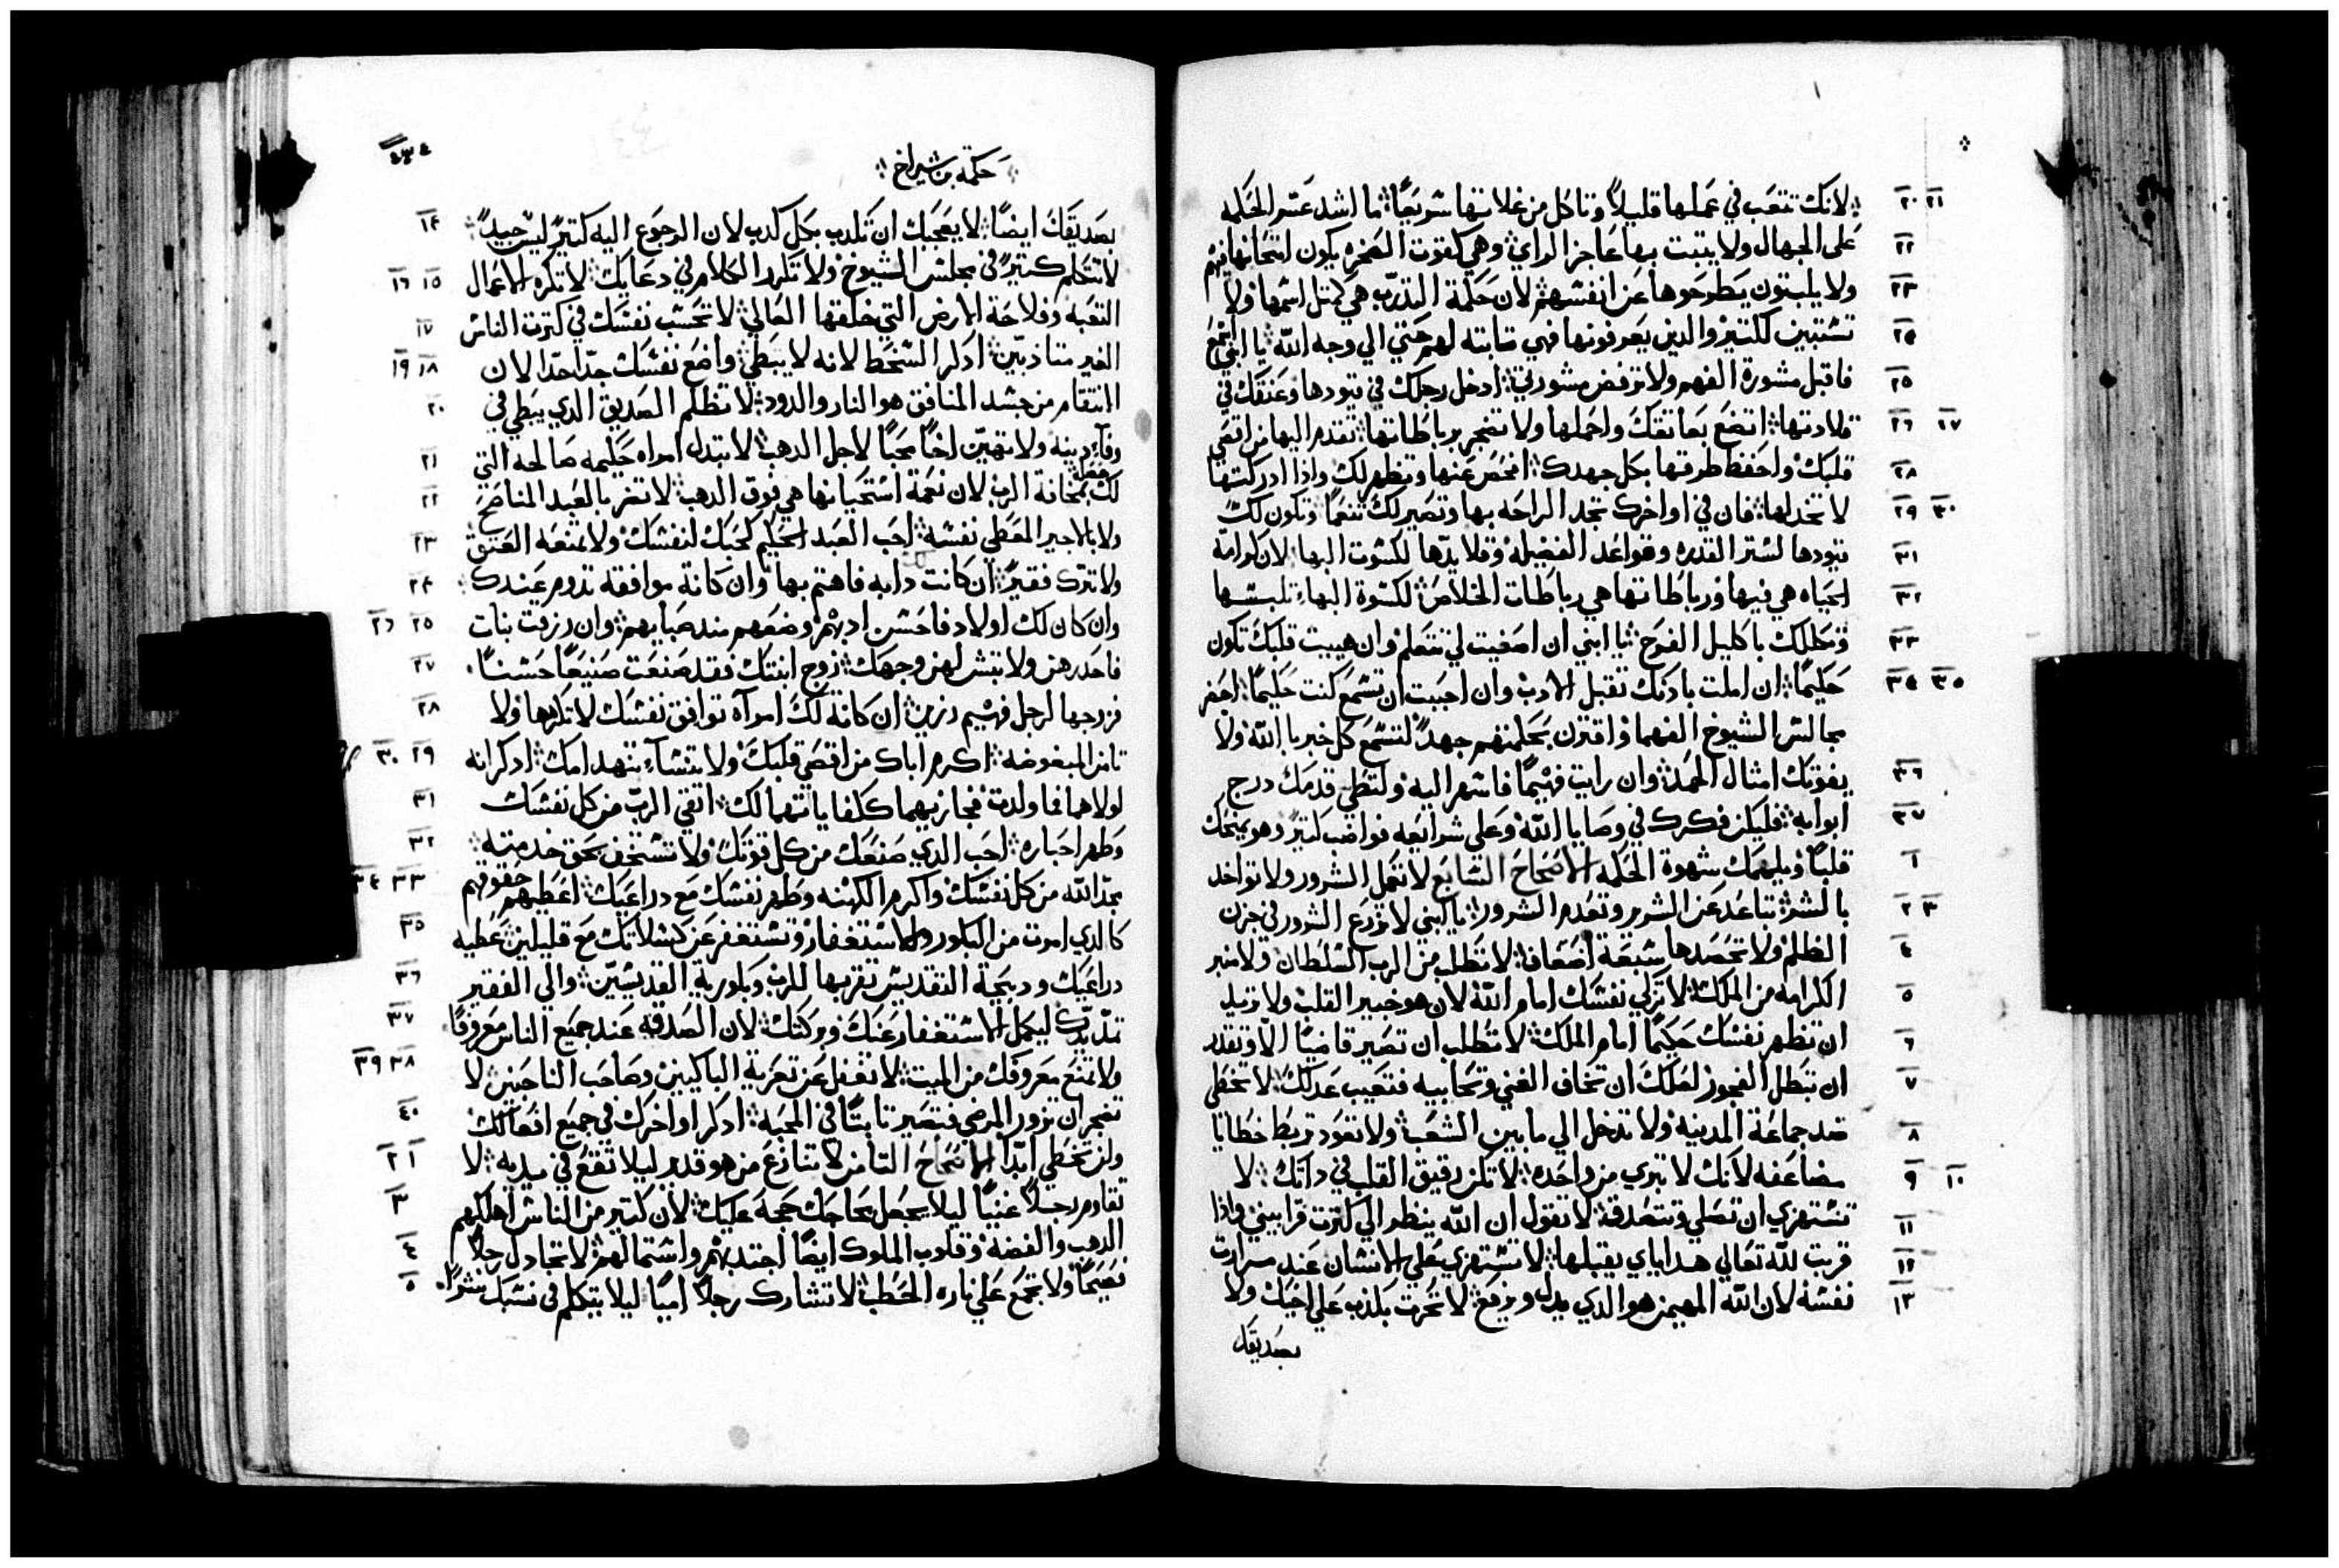 لانك تتعب في عملها قليلاً وتاكل من غلاتها سريعاً ما اشد عسر الحكمه
على الجهال ولا يتبت بها عاجز الراي وهي كقوت الصخره يكون امتحانها فيهم
ولا يلبتون يطرحوها عن انفسهم لان حكمة التدرب هي كمتل اسمها ولا
تستبين لكتير والدين يعرفونها فهي تابته لهم حتي الي وجه الله يا ابني اسمع
فاقبل مشورة الفهم ولا ترفض مشورتي ادخل رجلك في قيودها وعنقك في
قلادتها اتضع بعاتقك واحملها ولا تضجر برباطاتها تقدم اليها من اقصي
قلبك واحفظ طرقها بكل جهدك افحص عنها وتظهر لك وادا ادركتها
لا تخدلها فان في اواخرك تجد الراحه بها وتصير لك تنعماً وتكون لك
قيودها لستر القدره وقواعد الفضيله وقلايدها لكسوت البها لان كرامة
الحياه هي فيها ورباطاتها هي رباطات الخلاص لكسوة البهاء تلبسها
وتكللك باكليل الفرح يا ابني ان اصغيت لي تتعلم وان هييت قلبك تكون
حكيماً ان املت بادنك تقبل الادب وان احببت ان تسمع كنت حكيماً احضر
مجالس الشيوخ الفهما واقترن بحكمتهم جهداً لتسمع كل خبر باالله ولا
يفوتك امتال الحمد وان رايت فهيماً فاسهر اليه ولتطي قدمك درج
ابوابه فليكن فكرك في وصايا الله وعلى شرايعه فواضب كتير وهو يمنحك
قلباً ويلهمك شهوة الحكمه الاصحاح السابع لا تعمل الشرور ولا تواخد
بالشر تباعد عن الشرير وتعدم الشرور يا ابني لا تزرع الشرور في حزن
الظلم ولا تحصدها سبعة اضعاف لا تطلب من الرب السلطان ولا منبر
الكرامه من الملك لا تزكي نفسك امام الله لان هو خبير القلب ولا تريد
ان تظهر نفسك حكيماً امام الملك لا تطلب ان تصير قاضياً الا وتقدر
ان تبطل الفجور لعلك ان تخاف الغني وتحابيه فتعيب عدلك لا تخطي
ضد جماعة المدينه ولا تدخل الي ما بين الشعب ولا تعود تربط خطايا
مضاعفه لانك لا تبري من واحده لا تكن رقيق القلب في داتك لا
تستهزي ان تصلي وتتصدق لا تقول ان الله ينظر الي كترت قرابيني وادا
قربت لله تعالي هداياي يقبلها لا تستهزي علي الانسان عند مرارت
نفسه لان الله المهيمن هو الدي يدل ويرفع لا تحرت بكدب علي اخيك ولا
بصديقك
٢٠ ٢١
٢٢
٢٣
٢٤
٢٥
٢٦ ٢٧
٢٨
٢٩ ٣٠
٣١
٣٢
٣٣
٣٤ ٣٥
٣٦
٣٧
١
٢ ٣
٤
٥
٦
٧
٨
٩ ١٠
١١
١٢
١٣
حكمة بن شيراخ
٤٣٤
بصديقك ايضاً لا يعجبك ان تكدب بكل كدب لان الرجوع اليه كتير ليس جيداً
لا تتكلم كتير في مجلس الشيوخ ولا تكرر الكلام في دعايك لا تكره الاعمال
التعبه وفلاحة الارض التي خلقها العالي لا تحسب نفسك في كترت الناس
الغير متادبين ادكر السخط لانه لا يبطي واضع نفسك جداً جداً لان
انتقام من جسد المنافق هو النار والدود لا تظلم الصديق الدي يبطي في
وفاء دينه ولا تهين اخاً محباً لاجل الدهب لا تبدل امراه حكيمه صالحه التي
لك بمخافة الرب لان نعمة استحيانها هي فوق الدهب لا تضر بالعبد المناصح
ولا بالاجير المعطي نفسه احب العبد الحكيم كحبك لنفسك ولا تمنعه العتق
ولا تتركه فقيراً ان كانت دابه فاهتم بها وان كانة موافقه تدوم عندك
وان كان لك اولاد فاحسن ادبهم وضعهم مند صبايهم وان رزقت بنات
فاحدرهن ولا تبش لهن وجهك زوج ابنتك فقد صنعت صنيعاً حسناً
فزوجها لرجل فهيم رزين ان كانة لك امراة توافق نفسك لا تكرهها ولا
تامن المبغوضه اكرم اباك من اقصي قلبك ولا تنساء تنهد امك ادكر انه
لولاهما فما ولدت فجازيهما كلفا ياتهما لك اتقي الرب من كل نفسك
وطهر احباره احب الدي صنعك من كل قوتك ولا تستخف بحق خدمته
مجد الله من كل نفسك واكرم الكهنه وطهر نفسك مع دراعيك اعطيهم حقوقهم
كالدي امرت من البكور والاستغفار وتستغفر عن كسلاتك مع قليلين عطيه
دراعيك ودبيحة التقديس تقربها للرب وبكورية القديسين والي الفقير
تمد يدك ليكمل الاستغفار عنك وبركتك لان الصدقه عند جميع الناس معروفاً
ولا تمنع معروفك من الميت لا تغفل عن تعزية الباكيين وصاحب الناحيين لا
تضجر ان تزور المرضي فتصير تابتاً في المحبه ادكر اواخرك في جميع افعالك
ولن تخطي ابداً الاصحاح التامن لا تنازع من هو قدير ليلا تقع في يديه لا
تقاوم رجلاً غنياً ليلا يجعل محاجك حجة عليك لان كتير من الناس اهلكهم
الدهب والفضه وقلوب الملوك ايضاً اجتدبهم واستمالهم لا تجادل رجلاً
نصيحاً ولا تجمع علي ناره الحطب لا تشارك رجلاً امياً ليلا يتكلم في نسبك شراً
١٤
١٥ ١٦
١٧
١٨ ١٩
٢٠
٢١
٢٢
٢٣
٢٤
٢٥ ٢٦
٢٧
٢٨
٢٩ ٣٠
٣١
٣٢
٣٣ ٣٤
٣٥
٣٦
٣٧
٣٨ ٣٩
٤٠
١ ٢
٣
٤
٥